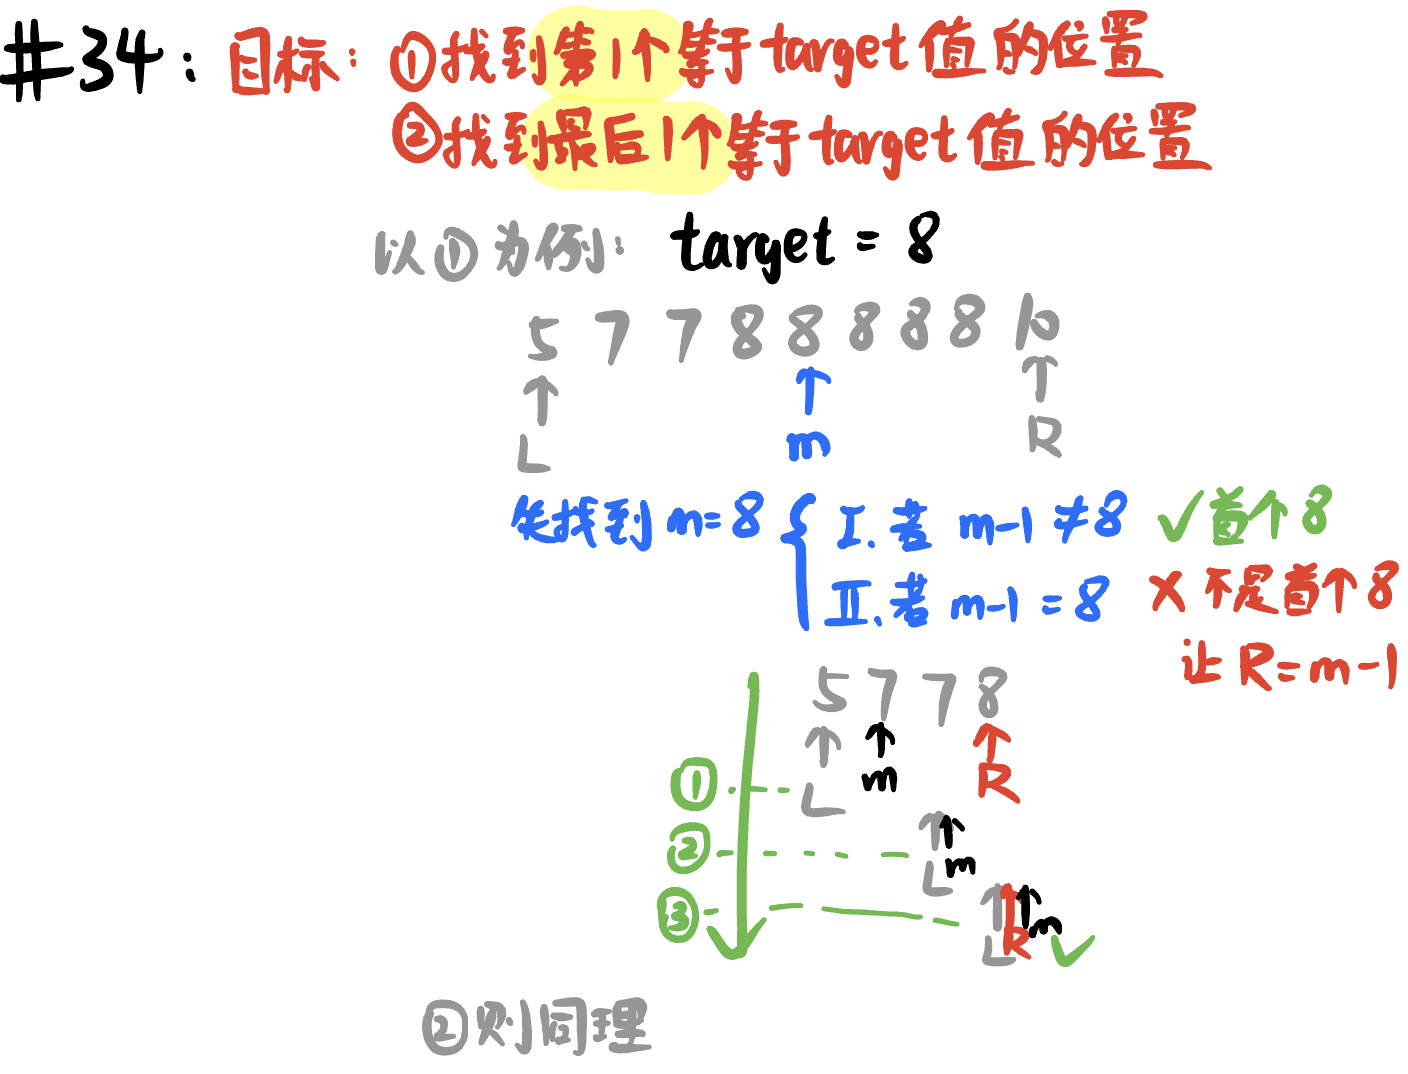 #34: 目标: ①找到第1个等于target值的位置
②找到最后1个等于target值的位置
以①为例: target = 8
5 7 7 8 8 8 8 8 10
L m R
先找到m=8 I.若 m-1≠8 ✓首个8
II.若 m-1=8 ×不是首个8
让R=m-1
5 7 7 8
① L m R
② L m
③ L R m ✓
②则同理